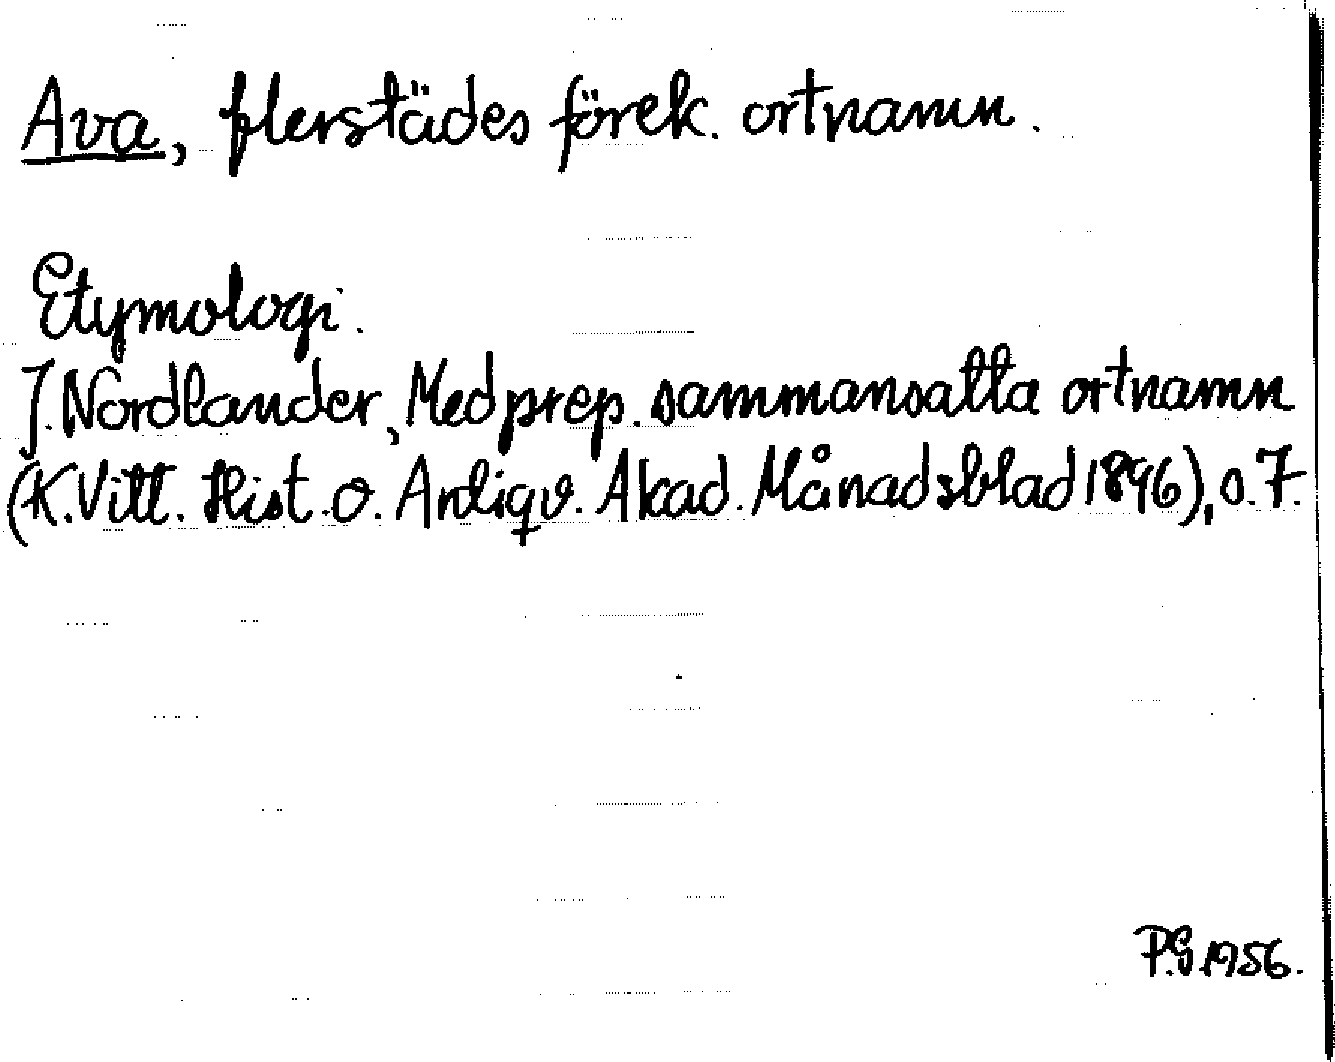 Ava, flerstädes förek. ortnamn.
Etymologi.
J. Nordlander, Med prep. sammansatta ortnamn
(K. Vitt. Hist. o. Antiqv. Akad. Månadsblad 1896), s. 7.
P.G 1956.